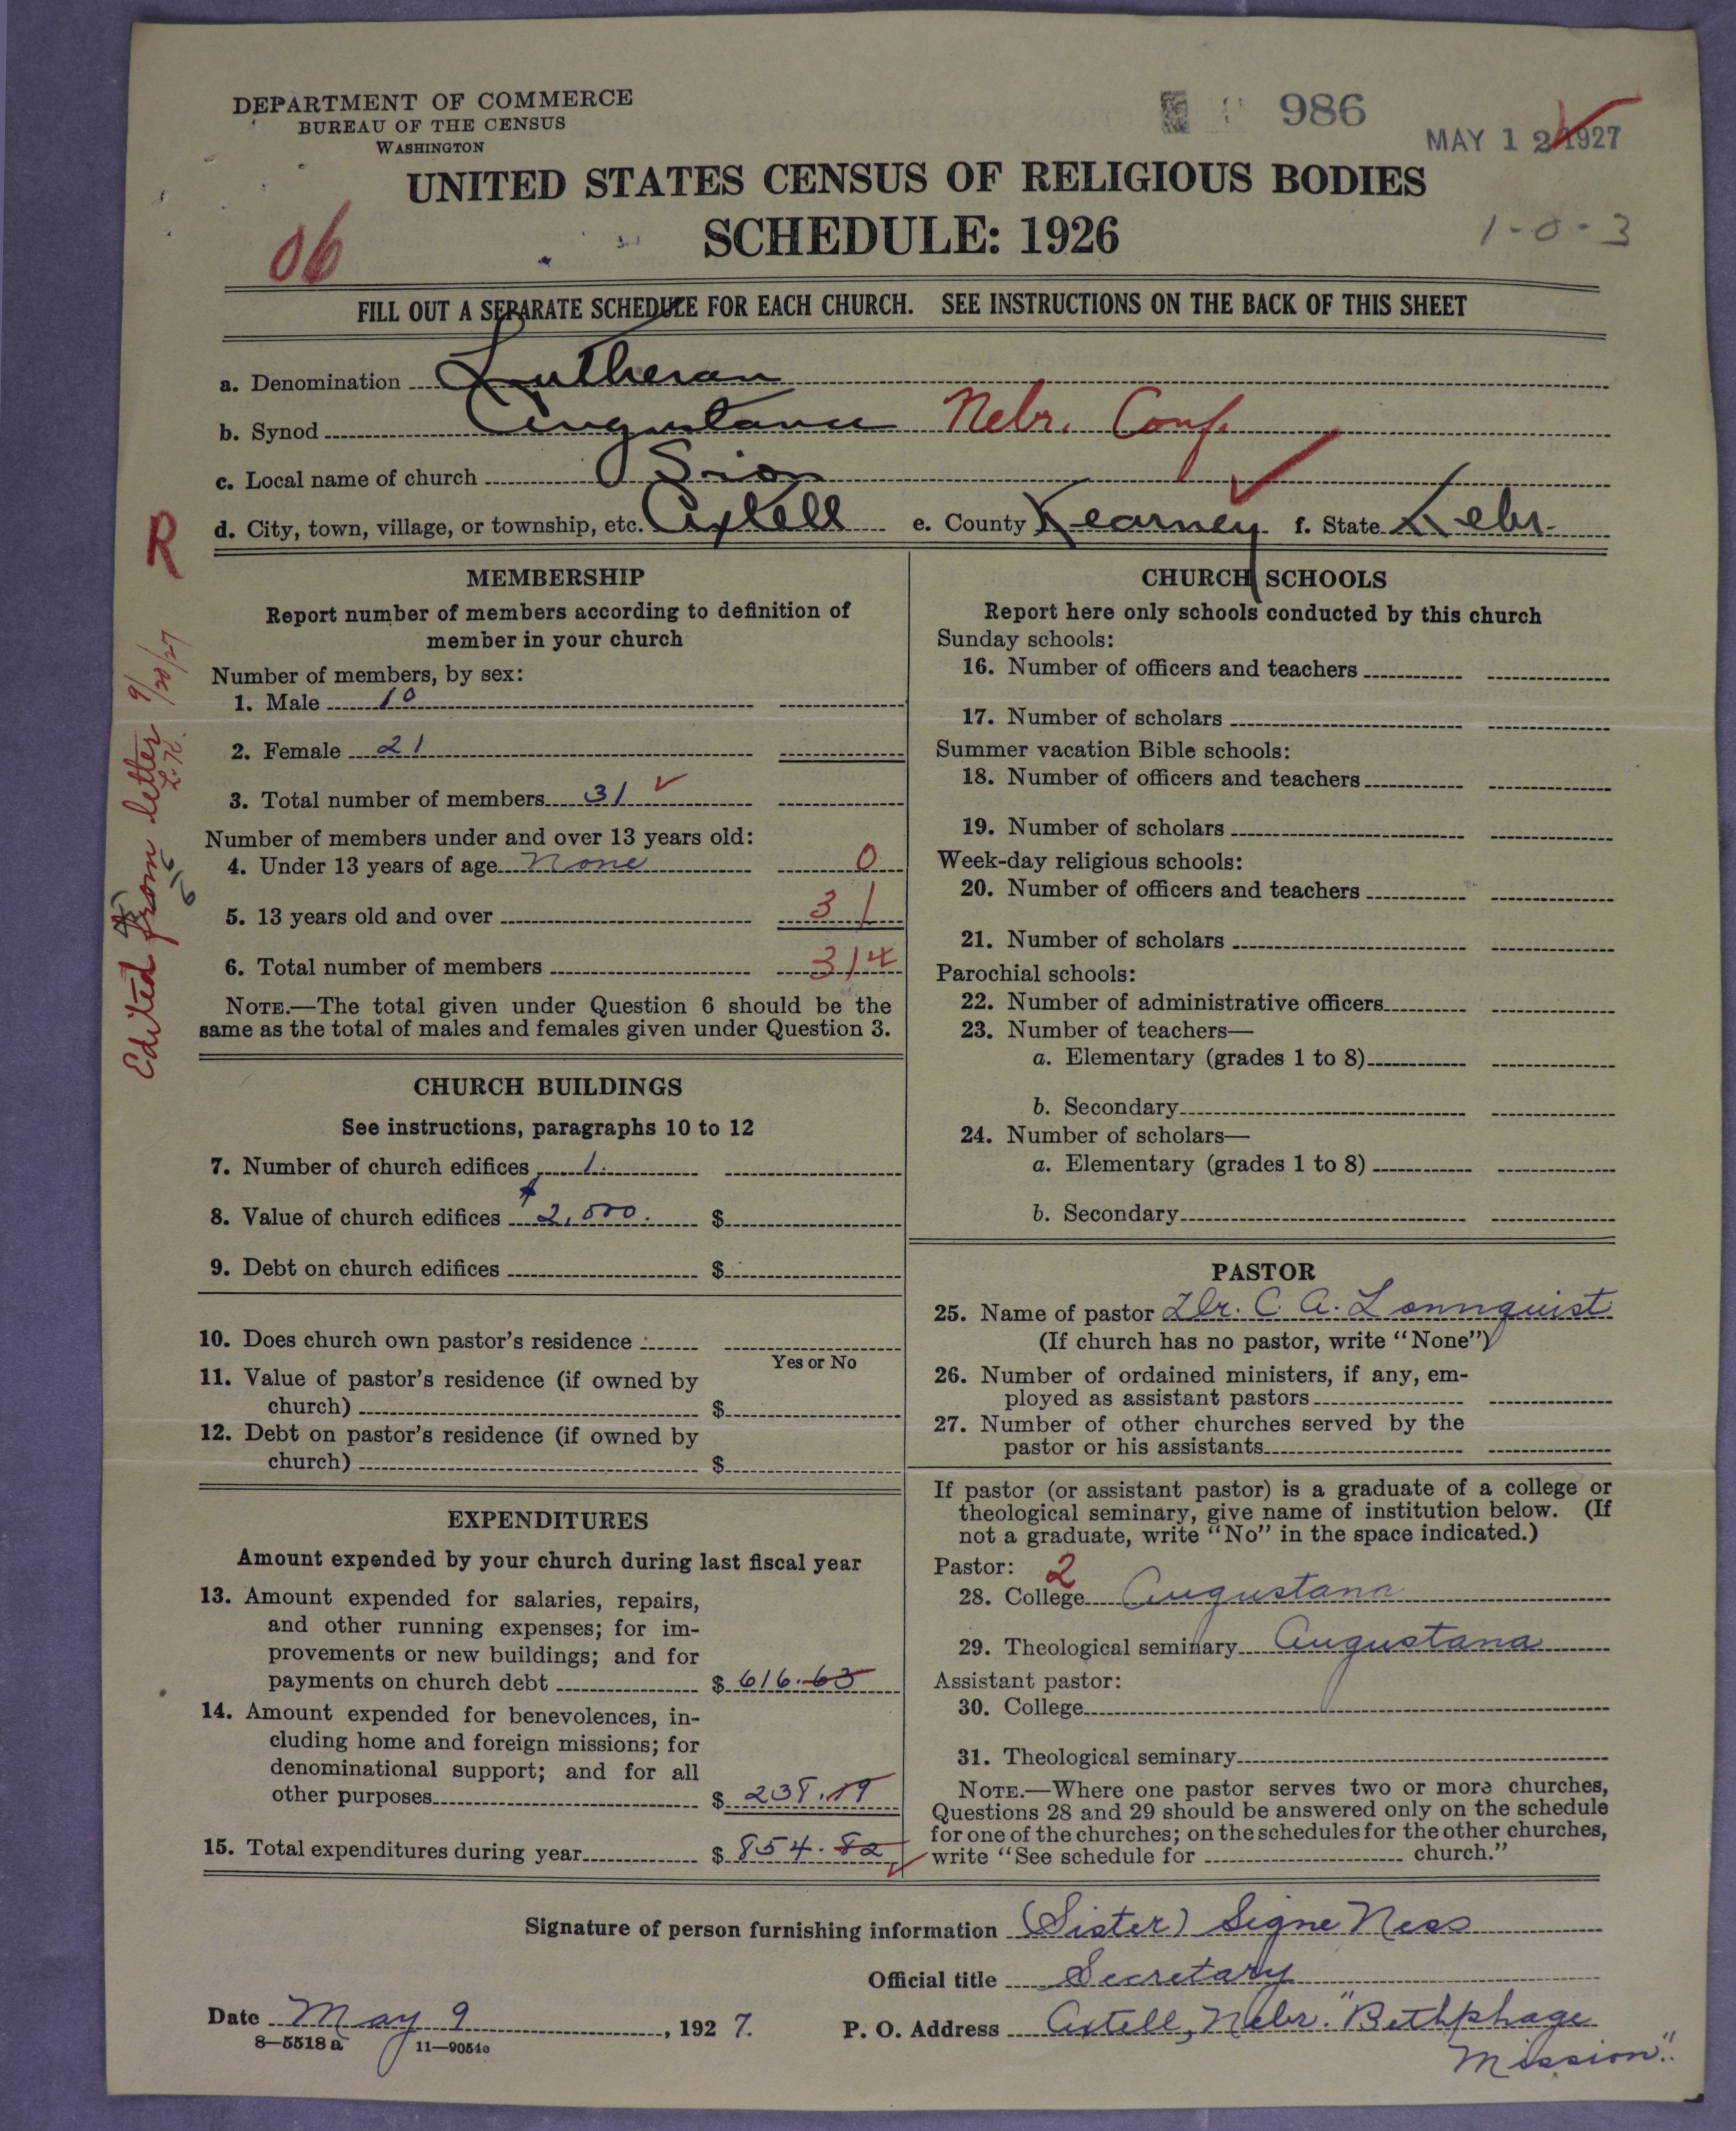 DEPARTMENT OF COMMERCE
BUREAU OF THE CENSUS
WASHINGTON
986
MAY 12 1927
UNITED STATES CENSUS OF RELIGIOUS BODIES
SCHEDULE: 1926
06
1-0-3
FILL OUT A SEPARATE SCHEDULE FOR EACH CHURCH. SEE INSTRUCTIONS ON THE BACK OF THIS SHEET
a. Denomination Lutheran
b. Synod Augustana Nebr. Conf.
c. Local name of church Sion
d. City, town, village, or township, etc. Axtell e. County Kearney f. State Nebr.
R
Edited from letter 9/20/27
MEMBERSHIP
Report number of members according to definition of
member in your church
Number of members, by sex:
1. Male 10
2. Female 21
3. Total number of members 31
Number of members under and over 13 years old:
4. Under 13 years of age None 0
5. 13 years old and over 31
6. Total number of members 31
NOTE.—The total given under Question 6 should be the
same as the total of males and females given under Question 3.
CHURCH BUILDINGS
See instructions, paragraphs 10 to 12
7. Number of church edifices 1.
8. Value of church edifices $2,000. $
9. Debt on church edifices $
10. Does church own pastor's residence
Yes or No
11. Value of pastor's residence (if owned by
church) $
12. Debt on pastor's residence (if owned by
church) $
EXPENDITURES
Amount expended by your church during last fiscal year
13. Amount expended for salaries, repairs,
and other running expenses; for im-
provements or new buildings; and for
payments on church debt $ 616.63
14. Amount expended for benevolences, in-
cluding home and foreign missions; for
denominational support; and for all
other purposes $ 238.19
15. Total expenditures during year $ 854.82
CHURCH SCHOOLS
Report here only schools conducted by this church
Sunday schools:
16. Number of officers and teachers
17. Number of scholars
Summer vacation Bible schools:
18. Number of officers and teachers
19. Number of scholars
Week-day religious schools:
20. Number of officers and teachers
21. Number of scholars
Parochial schools:
22. Number of administrative officers
23. Number of teachers—
a. Elementary (grades 1 to 8)
b. Secondary
24. Number of scholars—
a. Elementary (grades 1 to 8)
b. Secondary
PASTOR
25. Name of pastor Dr. C. A. Lonnquist
(If church has no pastor, write "None")
26. Number of ordained ministers, if any, em-
ployed as assistant pastors
27. Number of other churches served by the
pastor or his assistants
If pastor (or assistant pastor) is a graduate of a college or
theological seminary, give name of institution below. (If
not a graduate, write "No" in the space indicated.)
Pastor: 2
28. College Augustana
29. Theological seminary Augustana
Assistant pastor:
30. College
31. Theological seminary
NOTE.—Where one pastor serves two or more churches,
Questions 28 and 29 should be answered only on the schedule
for one of the churches; on the schedules for the other churches,
write "See schedule for church."
Signature of person furnishing information (Sister) Signe Ness
Official title Secretary
Date May 9, 1927. P. O. Address Axtell, Nebr. "Bethphage
Mission".
8—5518 a 11—9054a